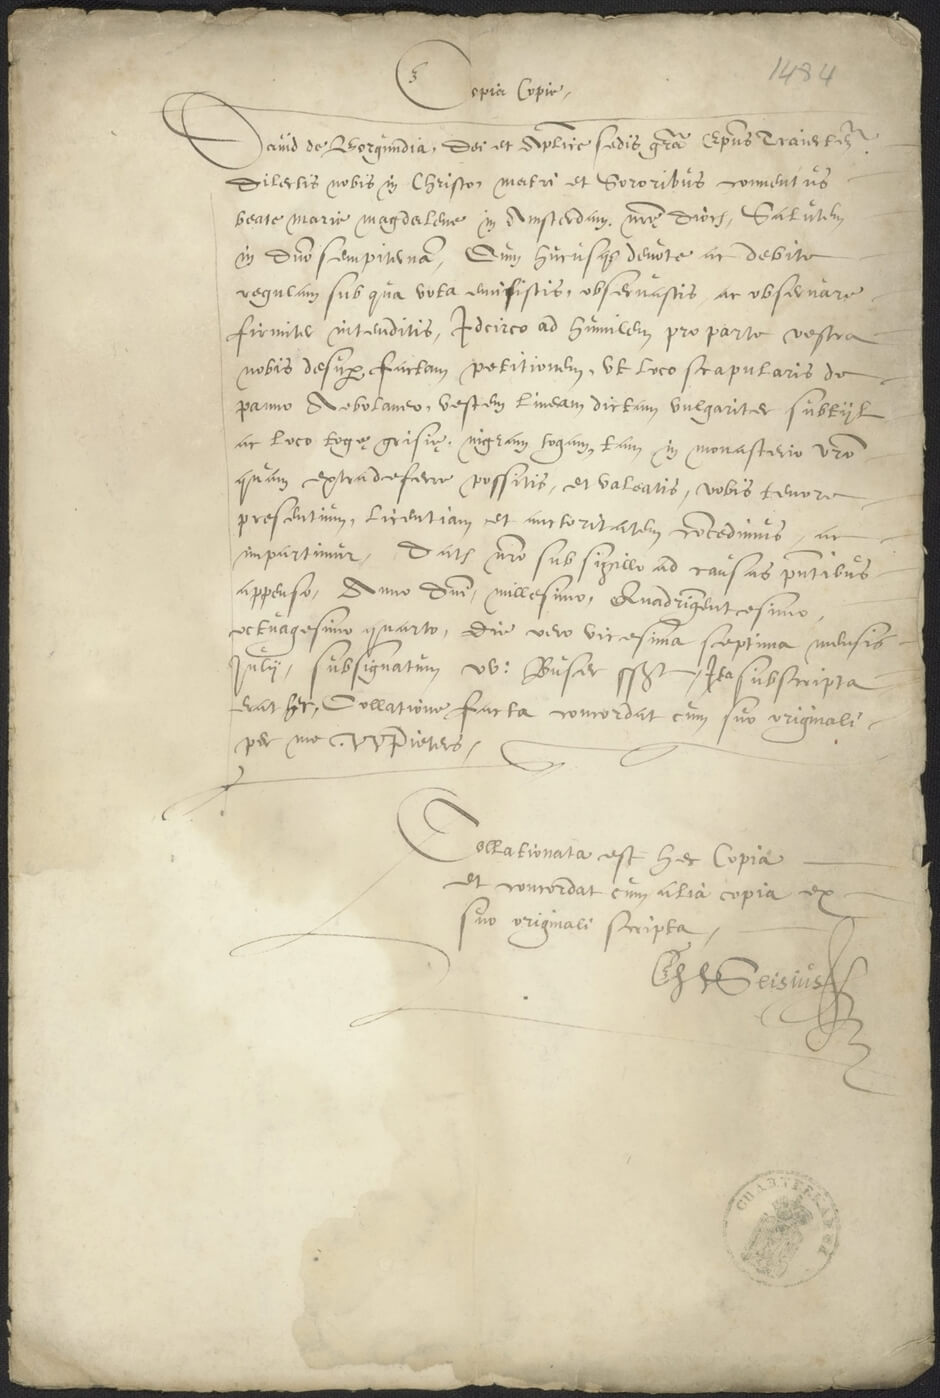 1484
Copia Copie,
David de Borgundia, Dei et Aplice sedis gra Epus Traiecteñ.
Dilectis nobis in Christo, matri et Sororibus conventus
beate marie magdalene in Amsterdam. nrę Dioc, Salutem
in dno sempiterna, Cum hucusq devote ac debite
regulam sub qua vota emisistis, observastis ac observare
firmiter intenditis, Idcirco ad humilem pro parte vestra
nobis desup factam petitionem, ut loco scapularis de
panno Nebolaneo, vestem lineam dictam vulgariter subtijl
ac loco togę grisię, nigram togam, tam in monasterio vro
quam extra deferre possitis, et valeatis, vobis tenore
presentium, licentiam et auctoritatem concedimus, ac
impartimur, Dat nro sub sigillo ad causas pntibus
appenso, Anno dni, millesimo, Quadringentesimo,
octuagesimo quarto, die vero vicesima septima mensis
Julij, subsignatum vv: Buser sst, Ita subscripta
erat hec, Collatione facta concordat cum suo originali
per me. VVPieters,
Collationata est hec Copia
et concordat cum alia copia ex
suo originali scripta,
Seisius
CHARTERKAMER